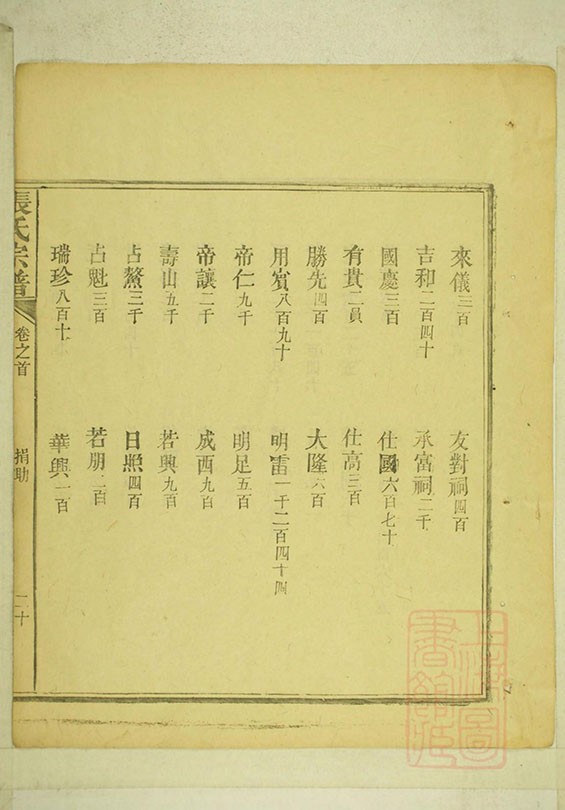 來儀三百 友對祠四百
吉和二百四十 承富祠二千
國慶三百 仕國六百七十
有貴二員 仕高三百
勝先四百 大隆六百
用賓八百九十 明雷一千二百四十四
帝仁九千 明足五百
帝讓二千 成酉九百
壽山五千 若興九百
占鰲三千 日照四百
占魁三百 若朋二百
瑞珍八百七十 華興一百
張氏宗譜 卷之首 捐助 二十
上海圖書館藏